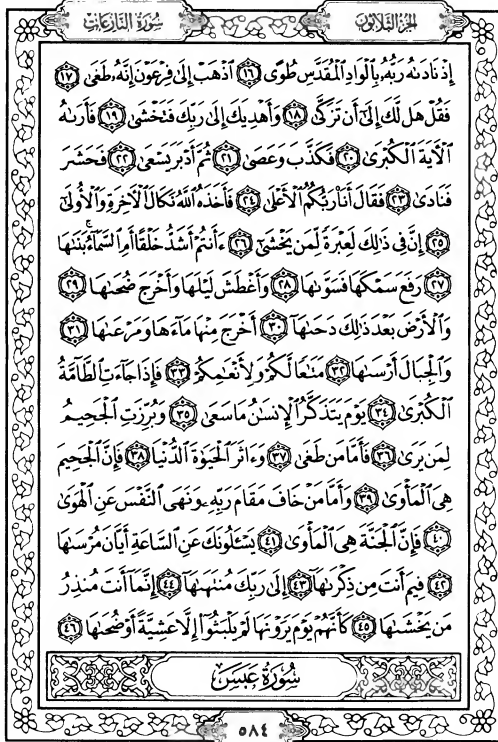 سُورَةُ النَّازِعَاتِ
الجُزْءُ الثَّلَاثُونَ
إِذْ نَادَىٰهُ رَبُّهُۥ بِٱلْوَادِ ٱلْمُقَدَّسِ طُوًى ١٦ ٱذْهَبْ إِلَىٰ فِرْعَوْنَ إِنَّهُۥ طَغَىٰ ١٧
فَقُلْ هَل لَّكَ إِلَىٰٓ أَن تَزَكَّىٰ ١٨ وَأَهْدِيَكَ إِلَىٰ رَبِّكَ فَتَخْشَىٰ ١٩ فَأَرَىٰهُ
ٱلْأَيَةَ ٱلْكُبْرَىٰ ٢٠ فَكَذَّبَ وَعَصَىٰ ٢١ ثُمَّ أَدْبَرَ يَسْعَىٰ ٢٢ فَحَشَرَ
فَنَادَىٰ ٢٣ فَقَالَ أَنَا۠ رَبُّكُمُ ٱلْأَعْلَىٰ ٢٤ فَأَخَذَهُ ٱللَّهُ نَكَالَ ٱلْأَخِرَةِ وَٱلْأُولَىٰٓ
٢٥ إِنَّ فِى ذَٰلِكَ لَعِبْرَةً لِّمَن يَخْشَىٰٓ ٢٦ ءَأَنتُمْ أَشَدُّ خَلْقًا أَمِ ٱلسَّمَآءُ ۚ بَنَىٰهَا
٢٧ رَفَعَ سَمْكَهَا فَسَوَّىٰهَا ٢٨ وَأَغْطَشَ لَيْلَهَا وَأَخْرَجَ ضُحَىٰهَا ٢٩
وَٱلْأَرْضَ بَعْدَ ذَٰلِكَ دَحَىٰهَآ ٣٠ أَخْرَجَ مِنْهَا مَآءَهَا وَمَرْعَىٰهَا ٣١
وَٱلْجِبَالَ أَرْسَىٰهَا ٣٢ مَتَٰعًا لَّكُمْ وَلِأَنْعَٰمِكُمْ ٣٣ فَإِذَا جَآءَتِ ٱلطَّآمَّةُ
ٱلْكُبْرَىٰ ٣٤ يَوْمَ يَتَذَكَّرُ ٱلْإِنسَٰنُ مَا سَعَىٰ ٣٥ وَبُرِّزَتِ ٱلْجَحِيمُ
لِمَن يَرَىٰ ٣٦ فَأَمَّا مَن طَغَىٰ ٣٧ وَءَاثَرَ ٱلْحَيَوٰةَ ٱلدُّنْيَا ٣٨ فَإِنَّ ٱلْجَحِيمَ
هِىَ ٱلْمَأْوَىٰ ٣٩ وَأَمَّا مَنْ خَافَ مَقَامَ رَبِّهِۦ وَنَهَى ٱلنَّفْسَ عَنِ ٱلْهَوَىٰ
٤٠ فَإِنَّ ٱلْجَنَّةَ هِىَ ٱلْمَأْوَىٰ ٤١ يَسْـَٔلُونَكَ عَنِ ٱلسَّاعَةِ أَيَّانَ مُرْسَىٰهَا
٤٢ فِيمَ أَنتَ مِن ذِكْرَىٰهَآ ٤٣ إِلَىٰ رَبِّكَ مُنتَهَىٰهَآ ٤٤ إِنَّمَآ أَنتَ مُنذِرُ
مَن يَخْشَىٰهَا ٤٥ كَأَنَّهُمْ يَوْمَ يَرَوْنَهَا لَمْ يَلْبَثُوٓا۟ إِلَّا عَشِيَّةً أَوْ ضُحَىٰهَا ٤٦
سُورَةُ عَبَسَ
٥٨٤